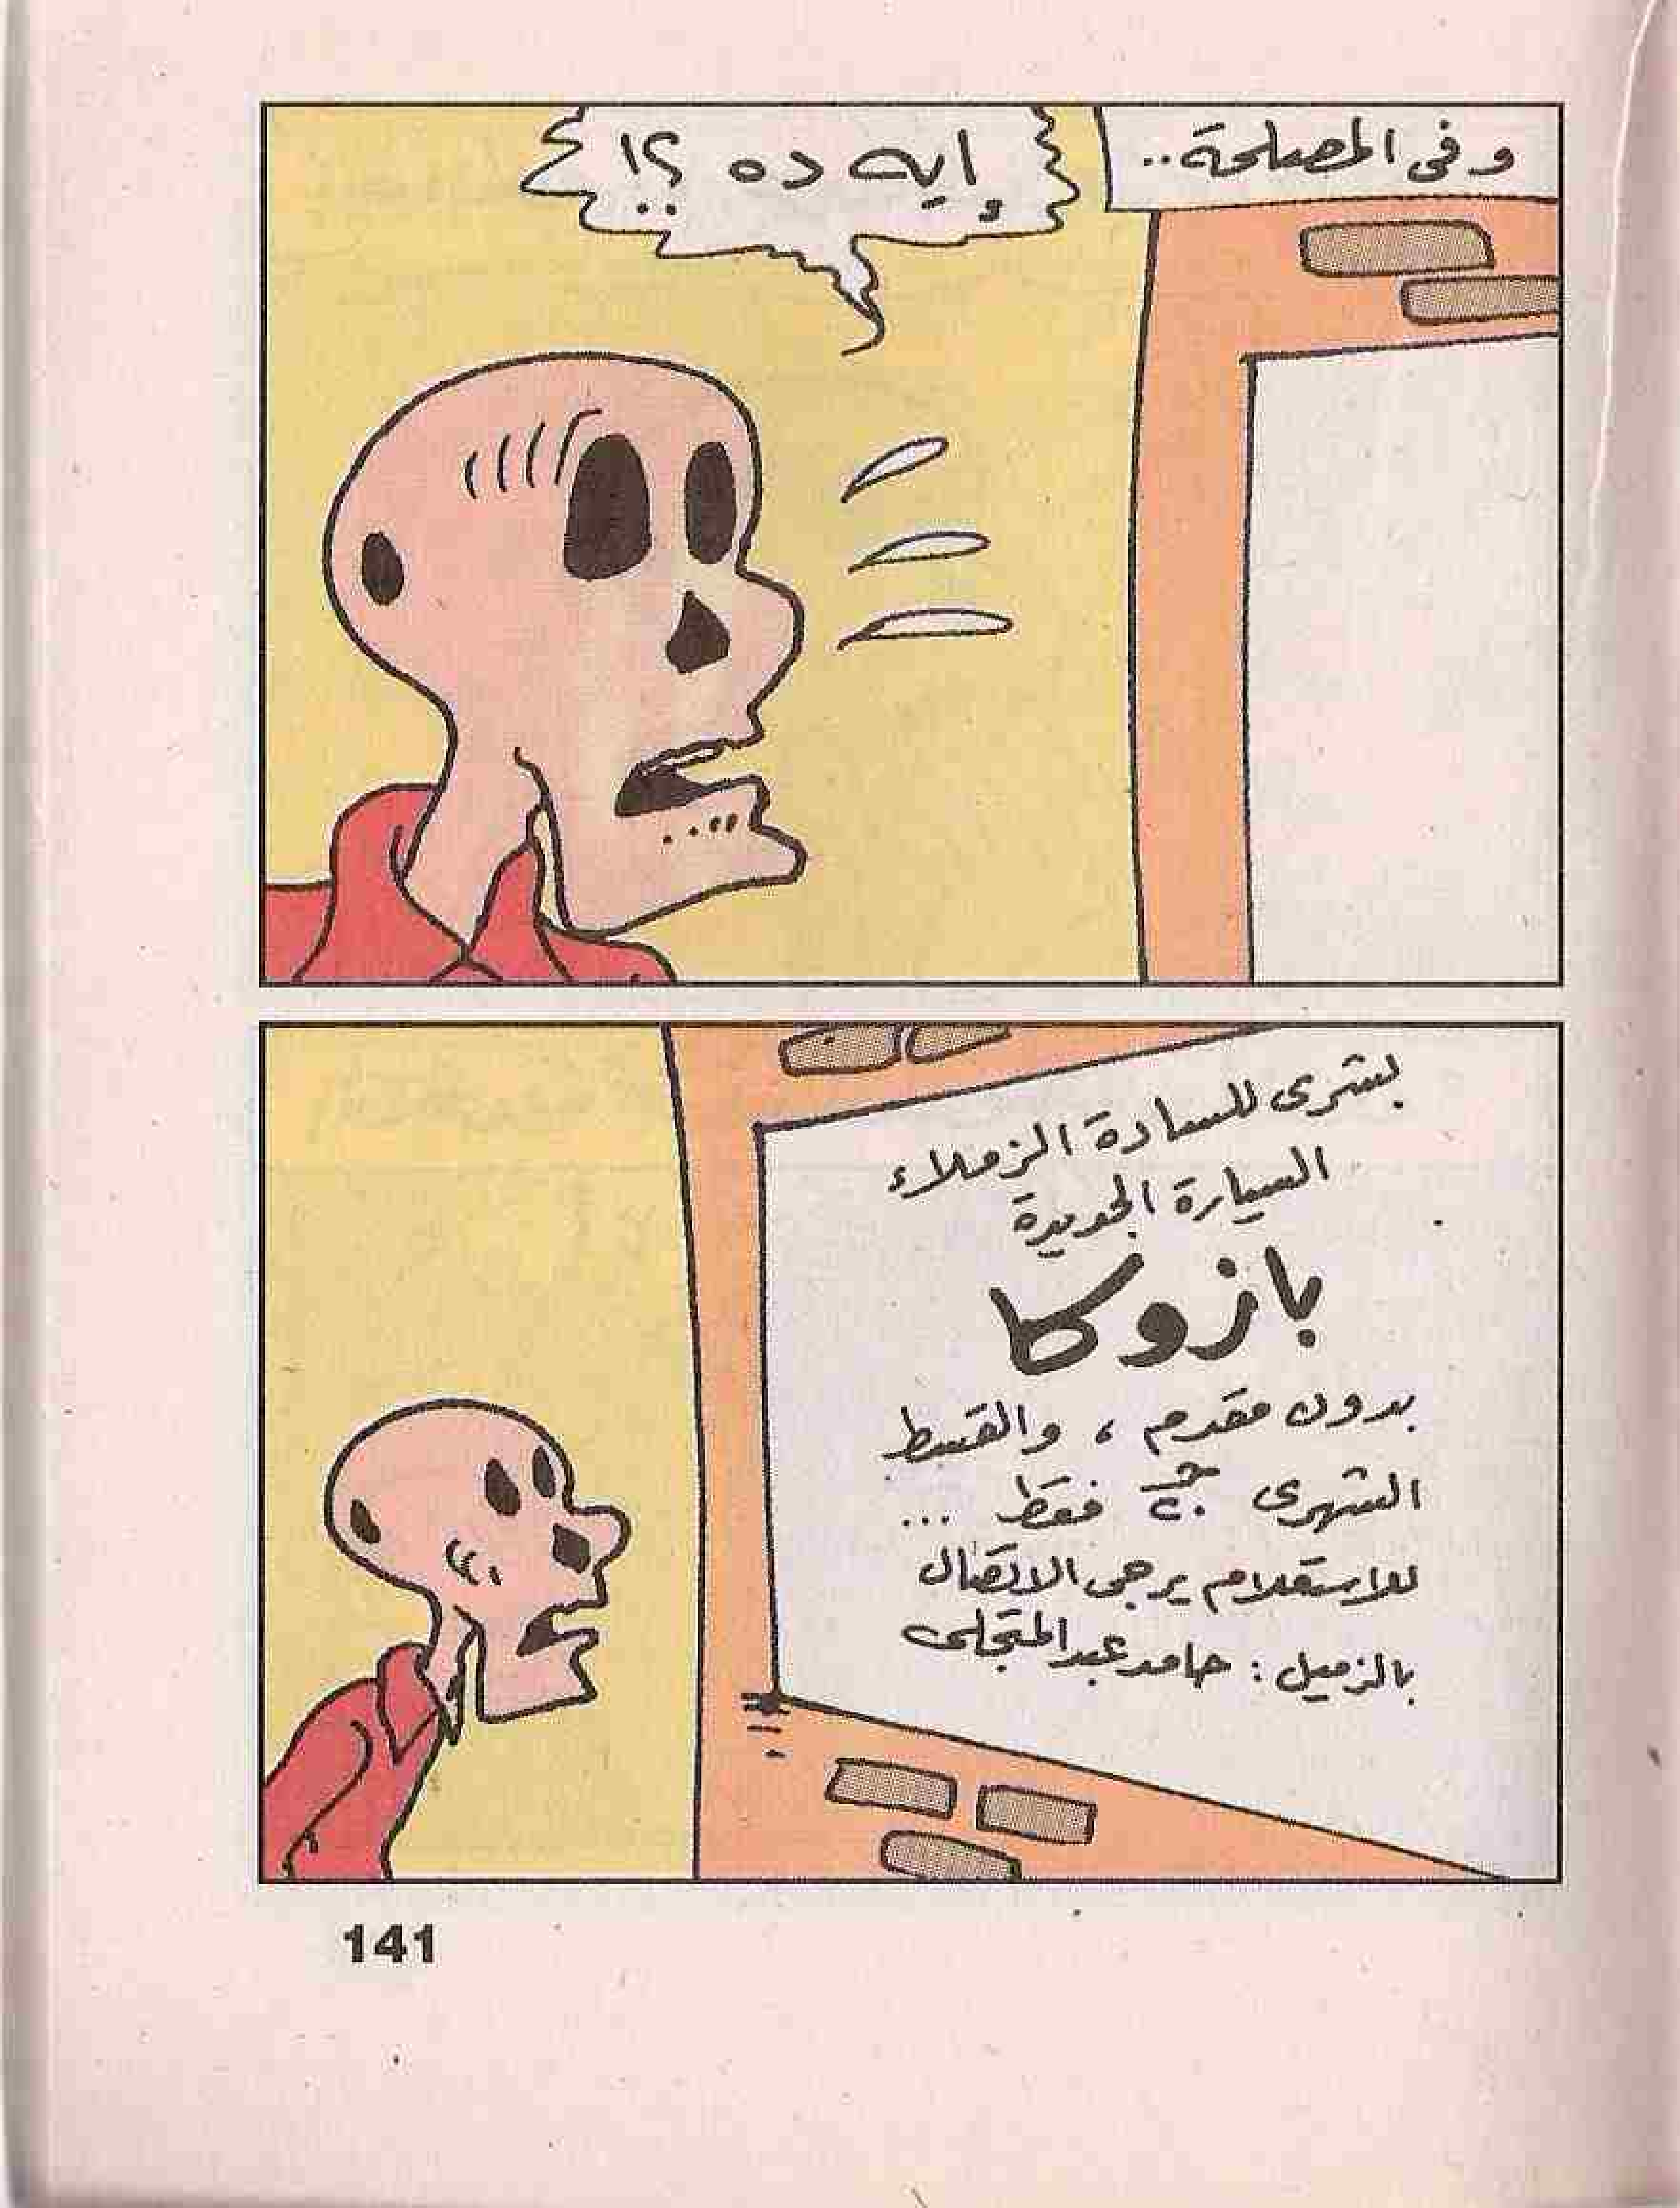 وفى المصلحة..
إيه ده ؟!
بشرى للسادة الزملاء
السيارة الجديدة
بازوكا
بدون مقدم ، والقسط
الشهرى ٢٠ جـ فقط ...
للاستعلام يرجى الاتصال
بالزميل : حامد عبد المتجلى
141